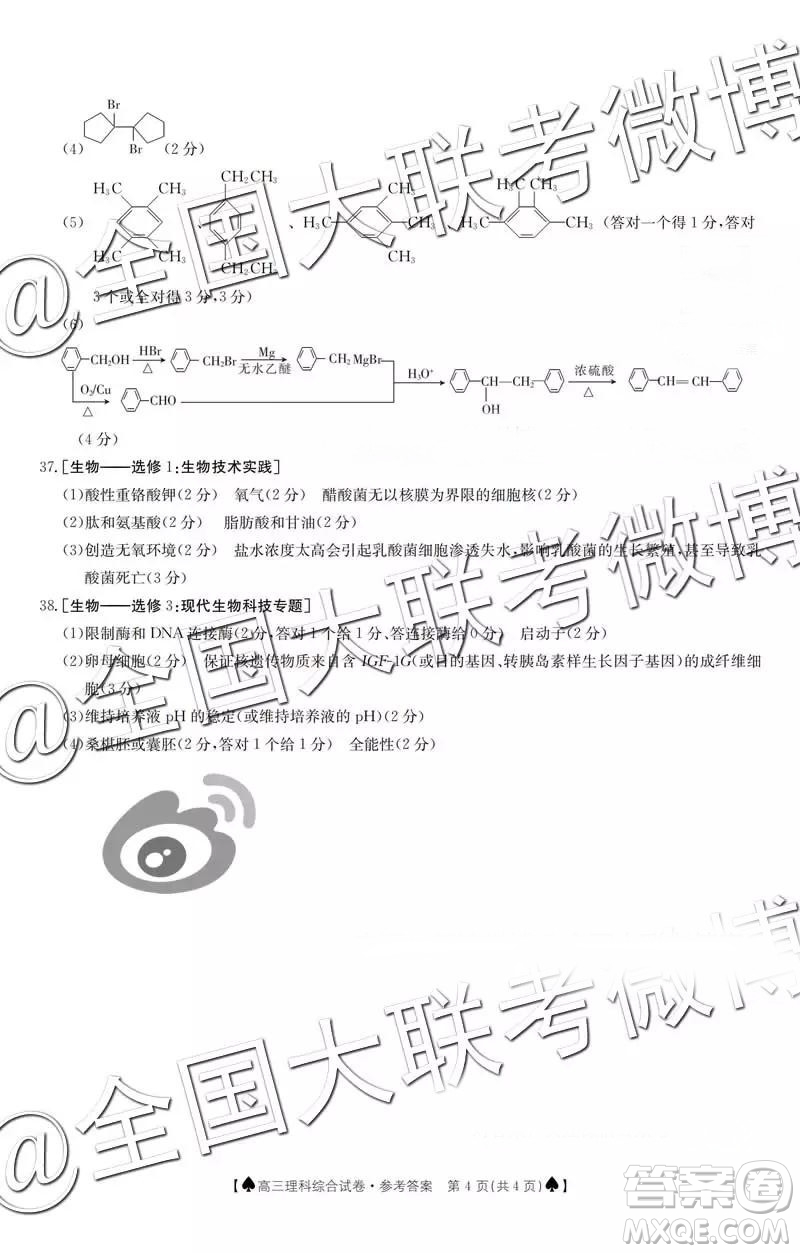 Br
(4) Br (2 分)
CH₂CH₃
H₃C CH₃ CH₃ CH₂CH₃
(5) 、 、H₃C CH₃、H₃C CH₃ (答对一个得 1 分,答对
H₃C CH₃ CH₂CH₃ CH₃
3 个或全对得 3 分,3 分)
(6)
CH₂OH HBr △ CH₂Br Mg 无水乙醚 CH₂MgBr H₃O⁺ CH—CH₂ OH 浓硫酸 △ CH═CH
O₂/Cu △ CHO
(4 分)
37.[生物——选修 1:生物技术实践]
(1)酸性重铬酸钾(2 分) 氧气(2 分) 醋酸菌无以核膜为界限的细胞核(2 分)
(2)肽和氨基酸(2 分) 脂肪酸和甘油(2 分)
(3)创造无氧环境(2 分) 盐水浓度太高会引起乳酸菌细胞渗透失水,影响乳酸菌的生长繁殖,甚至导致乳
酸菌死亡(3 分)
38.[生物——选修 3:现代生物科技专题]
(1)限制酶和 DNA 连接酶(2 分,答对 1 个给 1 分、答连接酶给 0 分) 启动子(2 分)
(2)卵母细胞(2 分) 保证核遗传物质来自含 IGF-1G(或目的基因、转胰岛素样生长因子基因)的成纤维细
胞(3 分)
(3)维持培养液 pH 的稳定(或维持培养液的 pH)(2 分)
(4)桑椹胚或囊胚(2 分,答对 1 个给 1 分) 全能性(2 分)
@全国大联考微博
@全国大联考微博
@全国大联考微博
【♠高三理科综合试卷·参考答案 第 4 页(共 4 页)♠】
答案圈
MXQE.COM